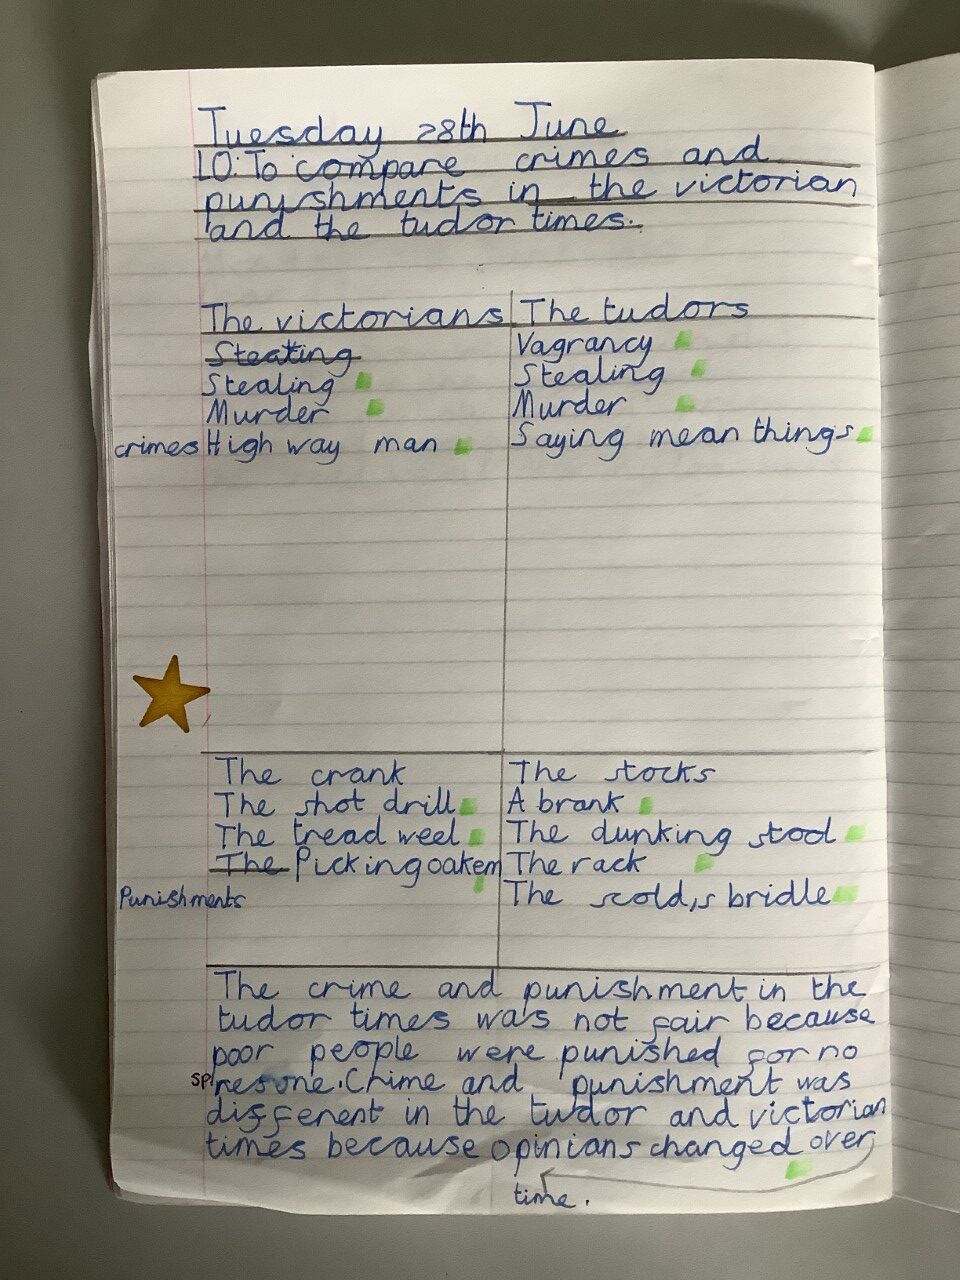 Tuesday 28th June
LO: To compare crimes and
punishments in the victorian
and the tudor times.
The victorians The tudors
Steating Vagrancy
Stealing Stealing
Murder Murder
crimes High way man Saying mean things
The crank The stocks
The shot drill A brank
The tread weel The dunking stool
The Picking oakem The rack
Punishments The scold,s bridle
The crime and punishment in the
tudor times was not fair because
poor people were punished for no
sp resone. Crime and punishment was
different in the tudor and victorian
times because opinians changed over
time.